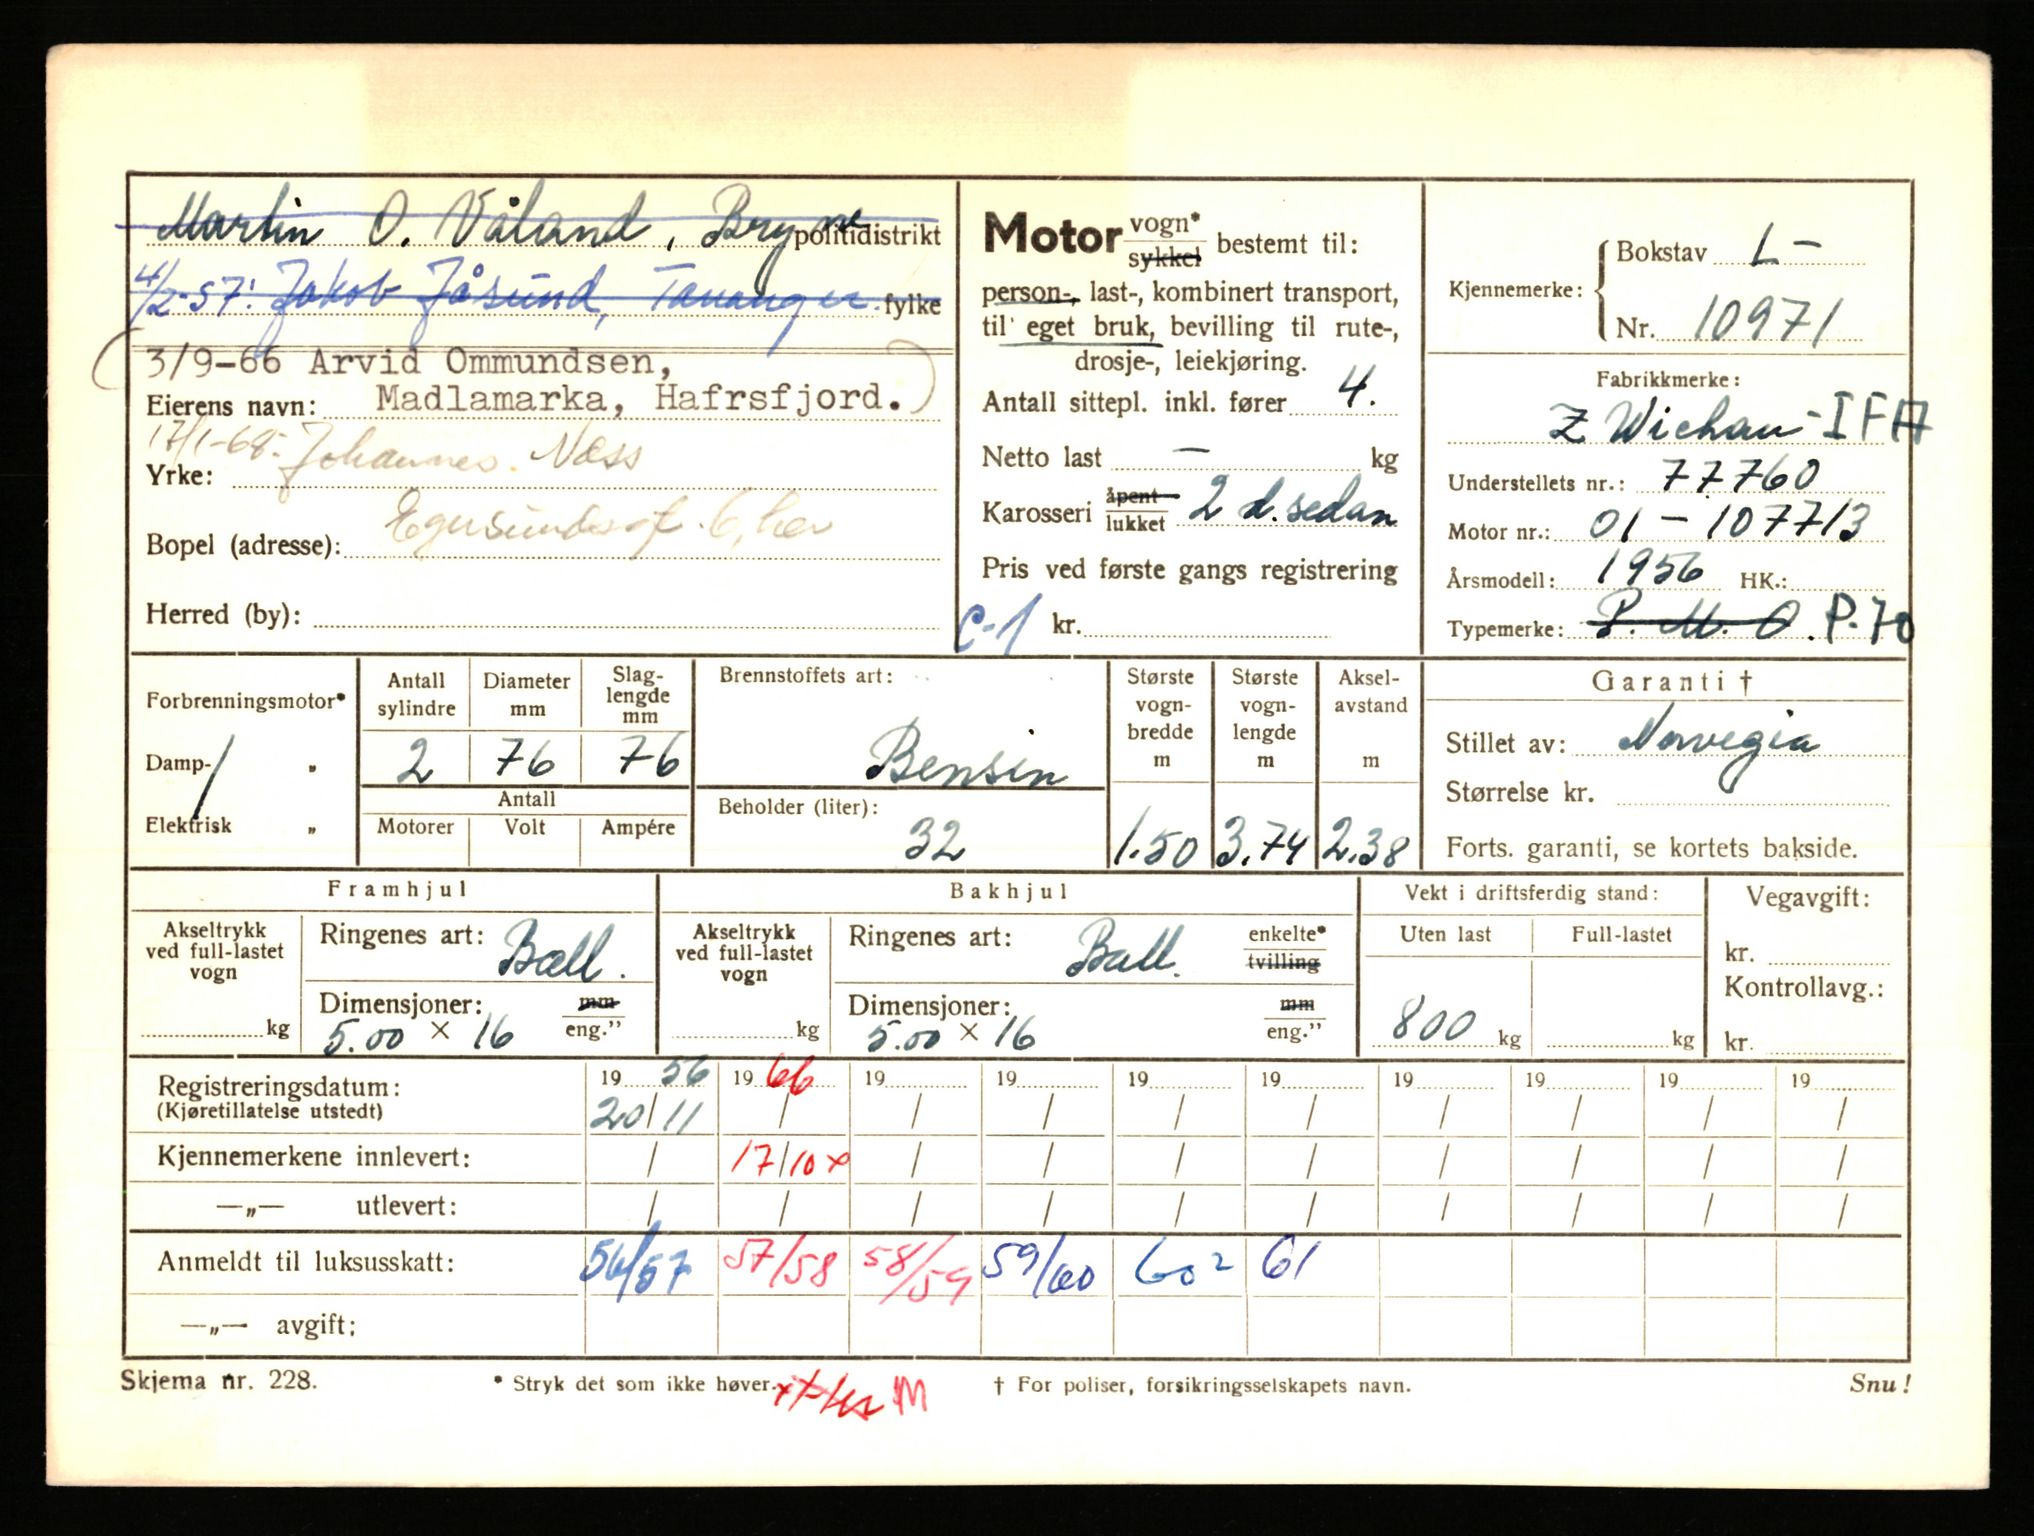 Martin O. Våland, Bryne politidistrikt
4/2-57: Jakob Jåsund, Tananger. fylke
(3/9-66 Arvid Ommundsen,
Eierens navn: Madlamarka, Hafrsfjord.)
17/1-68: Johannes Næss
Yrke:
Egersundsgt. 6, her
Bopel (adresse):
Herred (by):
Motor vogn* sykkel bestemt til:
person-, last-, kombinert transport,
til eget bruk, bevilling til rute-,
drosje-, leiekjøring.
Antall sittepl. inkl. fører 4.
Netto last — kg
Karosseri åpent lukket 2 d. sedan
Pris ved første gangs registrering
C-1 kr.
Kjennemerke: Bokstav L-
Nr. 10971
Fabrikkmerke:
Z Wichau - IFA
Understellets nr.: 77760
Motor nr.: 01 - 107713
Årsmodell: 1956 HK.:
Typemerke: P. M. O. P-70
Forbrenningsmotor*
Damp- „
Elektrisk „
Antall sylindre 2
Diameter mm 76
Slag-lengde mm 76
Antall
Motorer Volt Ampére
Brennstoffets art:
Bensin
Beholder (liter):
32
Største vogn-bredde m 1.50
Største vogn-lengde m 3.74
Aksel-avstand m 2.38
Garanti †
Stillet av: Norvegia
Størrelse kr.
Forts. garanti, se kortets bakside.
Framhjul
Akseltrykk ved full-lastet vogn kg
Ringenes art: Ball.
Dimensjoner: mm
5.00 × 16 eng."
Bakhjul
Akseltrykk ved full-lastet vogn kg
Ringenes art: Ball. enkelte* tvilling
Dimensjoner: mm
5.00 × 16 eng."
Vekt i driftsferdig stand:
Uten last Full-lastet
800 kg kg
Vegavgift:
kr.
Kontrollavg.:
kr.
Registreringsdatum: 19 56 19 66 19 19 19 19 19 19 19 19
(Kjøretillatelse utstedt) 20/11 / / / / / / / / /
Kjennemerkene innlevert: / 17/10 x / / / / / / / /
—„— utlevert: / / / / / / / / / /
Anmeldt til luksusskatt: 56/57 57/58 58/59 59/60 60² 61
—„— avgift:
Skjema nr. 228. * Stryk det som ikke høver. M † For poliser, forsikringsselskapets navn. Snu!